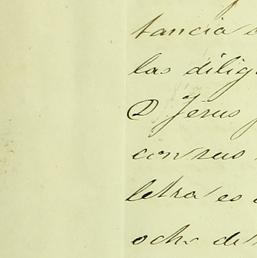 tancia
las dilig
D Jesus
con sus
letra es
ocho de